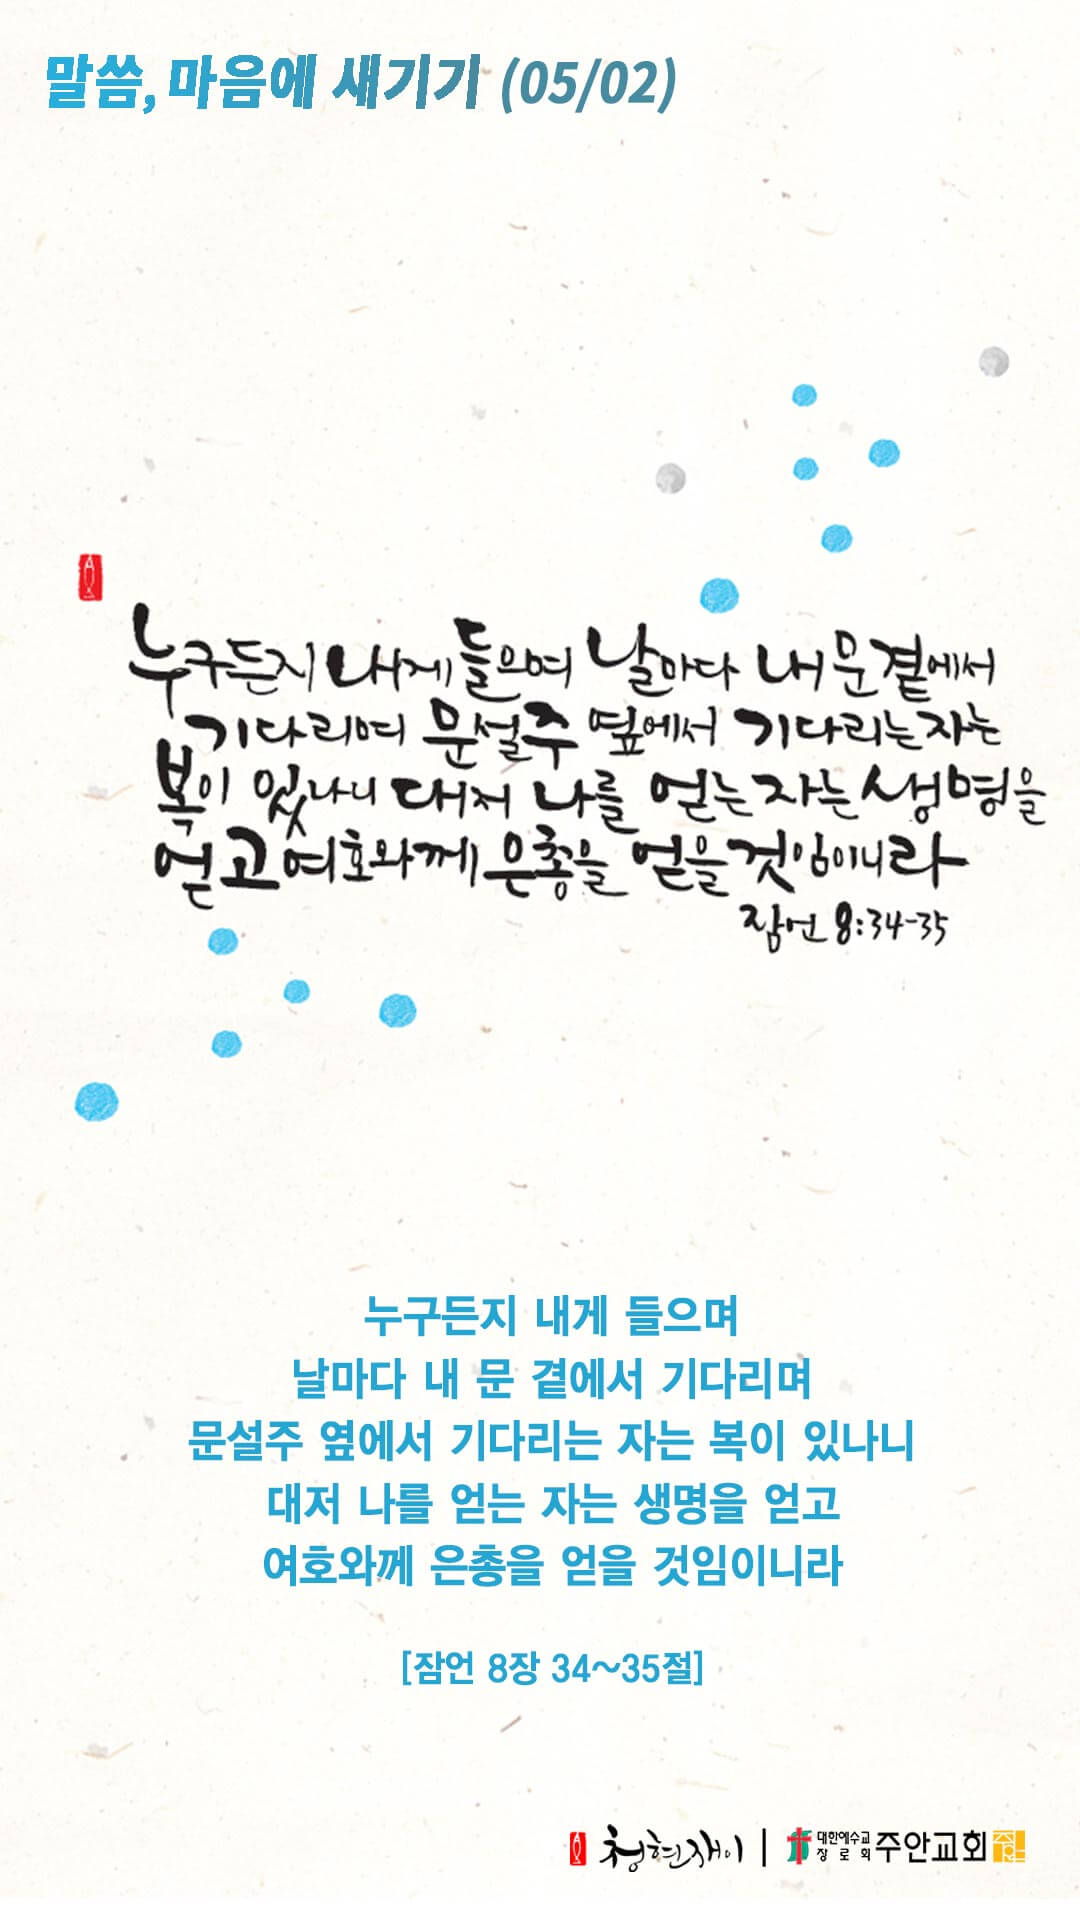 말씀, 마음에 새기기 (05/02)
누구든지 내게 들으며 날마다 내 문 곁에서
기다리며 문설주 옆에서 기다리는 자는
복이 있나니 대저 나를 얻는 자는 생명을
얻고 여호와께 은총을 얻을 것임이니라
잠언 8:34-35
누구든지 내게 들으며
날마다 내 문 곁에서 기다리며
문설주 옆에서 기다리는 자는 복이 있나니
대저 나를 얻는 자는 생명을 얻고
여호와께 은총을 얻을 것임이니라
[잠언 8장 34~35절]
청현재이 | 대한예수교
장로회 주안교회